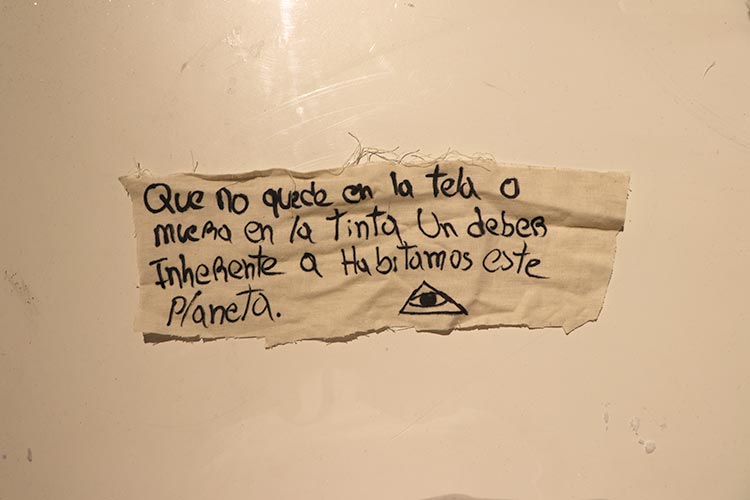 Que no quede en la tela o
muera en la tinta Un deber
Inherente a Habitamos este
Planeta.